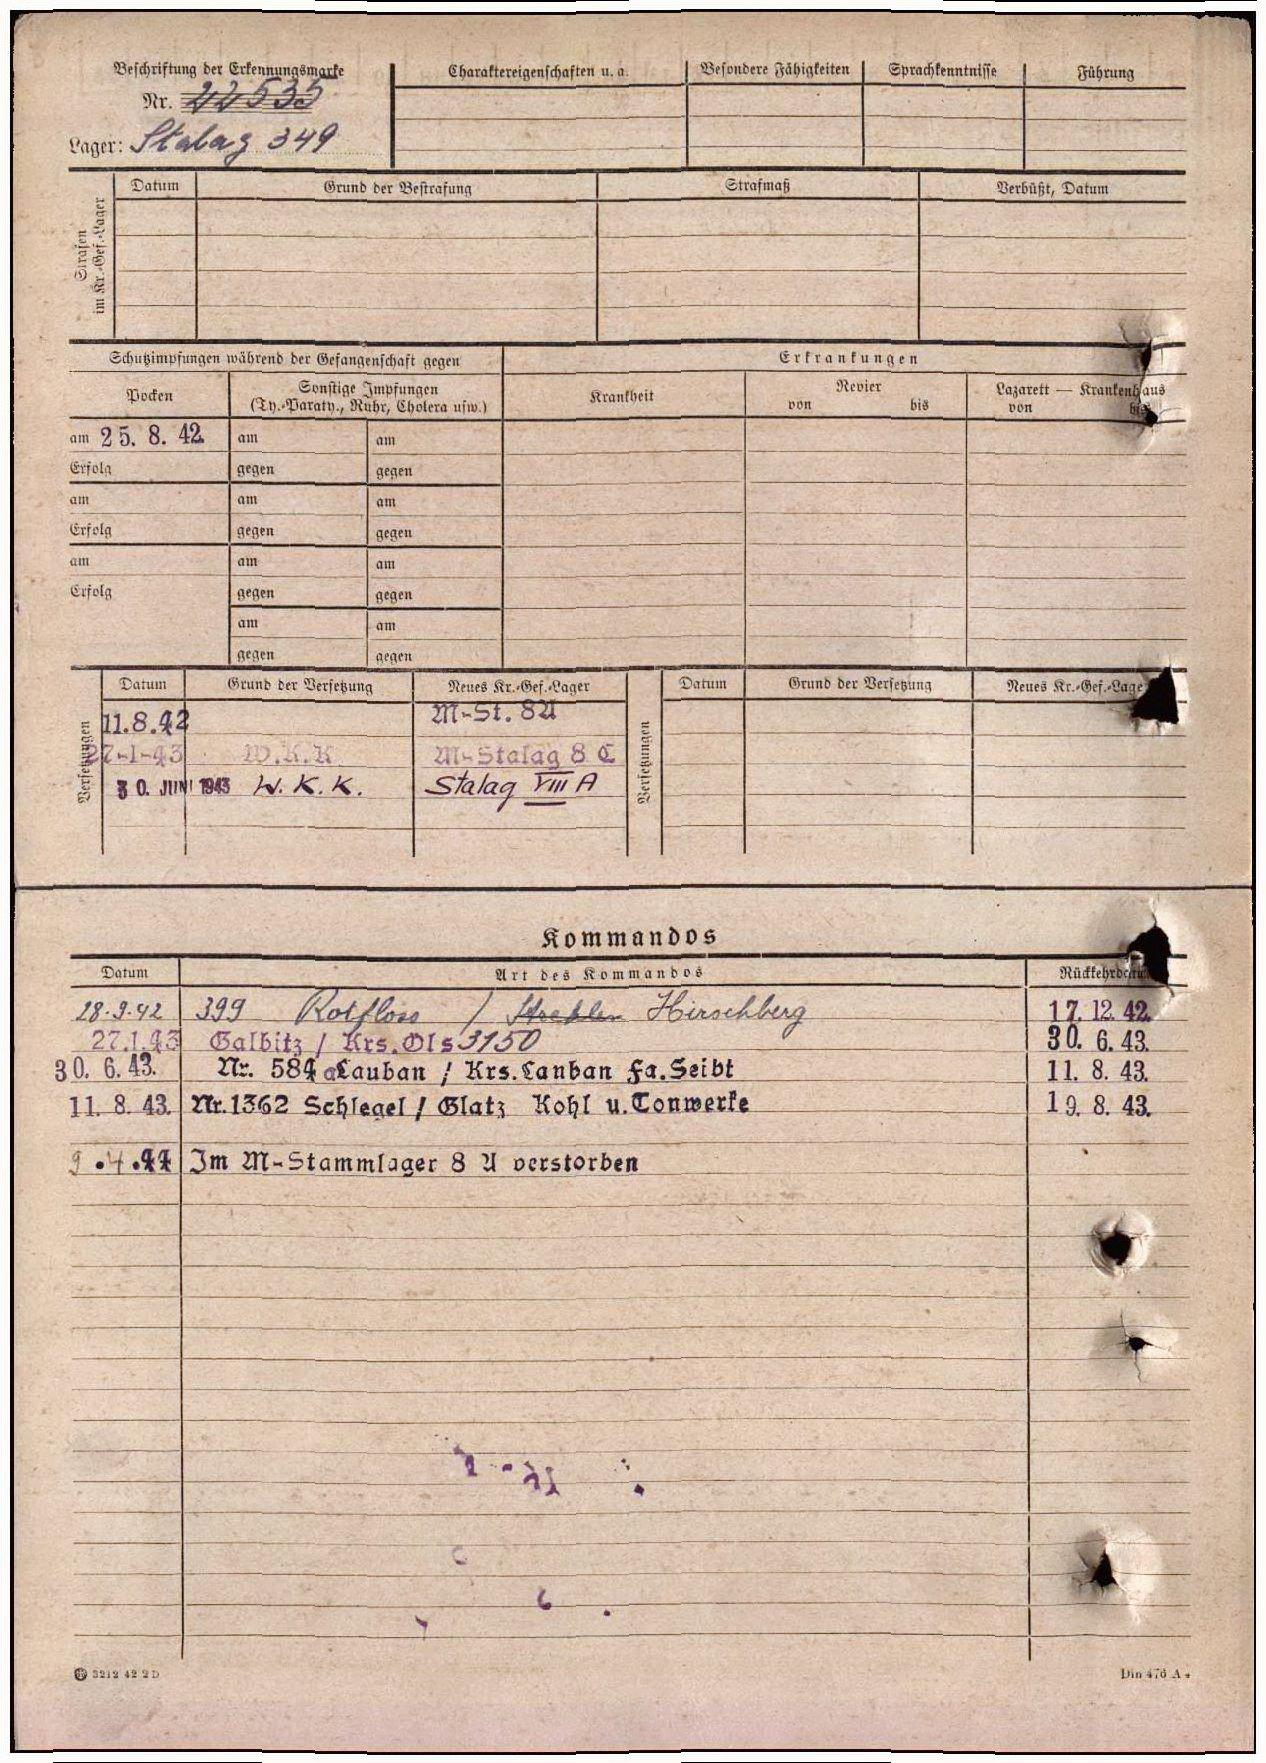 Beschriftung der Erkennungsmarke
Nr. 22535
Lager: Stalag 349
Charaktereigenschaften u. a.
Besondere Fähigkeiten
Sprachkenntnisse
Führung
Strafen im Kr.-Gef.-Lager
Datum
Grund der Bestrafung
Strafmaß
Verbüßt, Datum
Schutzimpfungen während der Gefangenschaft gegen
Erkrankungen
Pocken
Sonstige Impfungen
(Ty.-Paraty., Ruhr, Cholera usw.)
Krankheit
Revier
von bis
Lazarett — Krankenhaus
von bis
am 25. 8. 42. am am
Erfolg gegen gegen
am am am
Erfolg gegen gegen
am am am
Erfolg gegen gegen
am am
gegen gegen
Versetzungen
Datum Grund der Versetzung Neues Kr.-Gef.-Lager
11.8.42 M-St. 8A
27-1-43 W.K.K M-Stalag 8 C
30. JUNI 1943 W. K. K. Stalag VIII A
Versetzungen
Datum Grund der Versetzung Neues Kr.-Gef.-Lage
Kommandos
Datum Art des Kommandos Rückkehrdatum
28.9.42 399 Rotfloss / Hirschberg 17. 12. 42.
27.1.43 Galbitz / Krs. Ols 3150 30. 6. 43.
30. 6. 43. Nr. 584 a Lauban / Krs. Lanban Fa. Seibt 11. 8. 43.
11. 8. 43. Nr. 1362 Schlegel / Glatz Kohl u. Tonwerke 19. 8. 43.
9.4.44 Im M-Stammlager 8 A verstorben
3212 42 2 D
Din 476 A 4